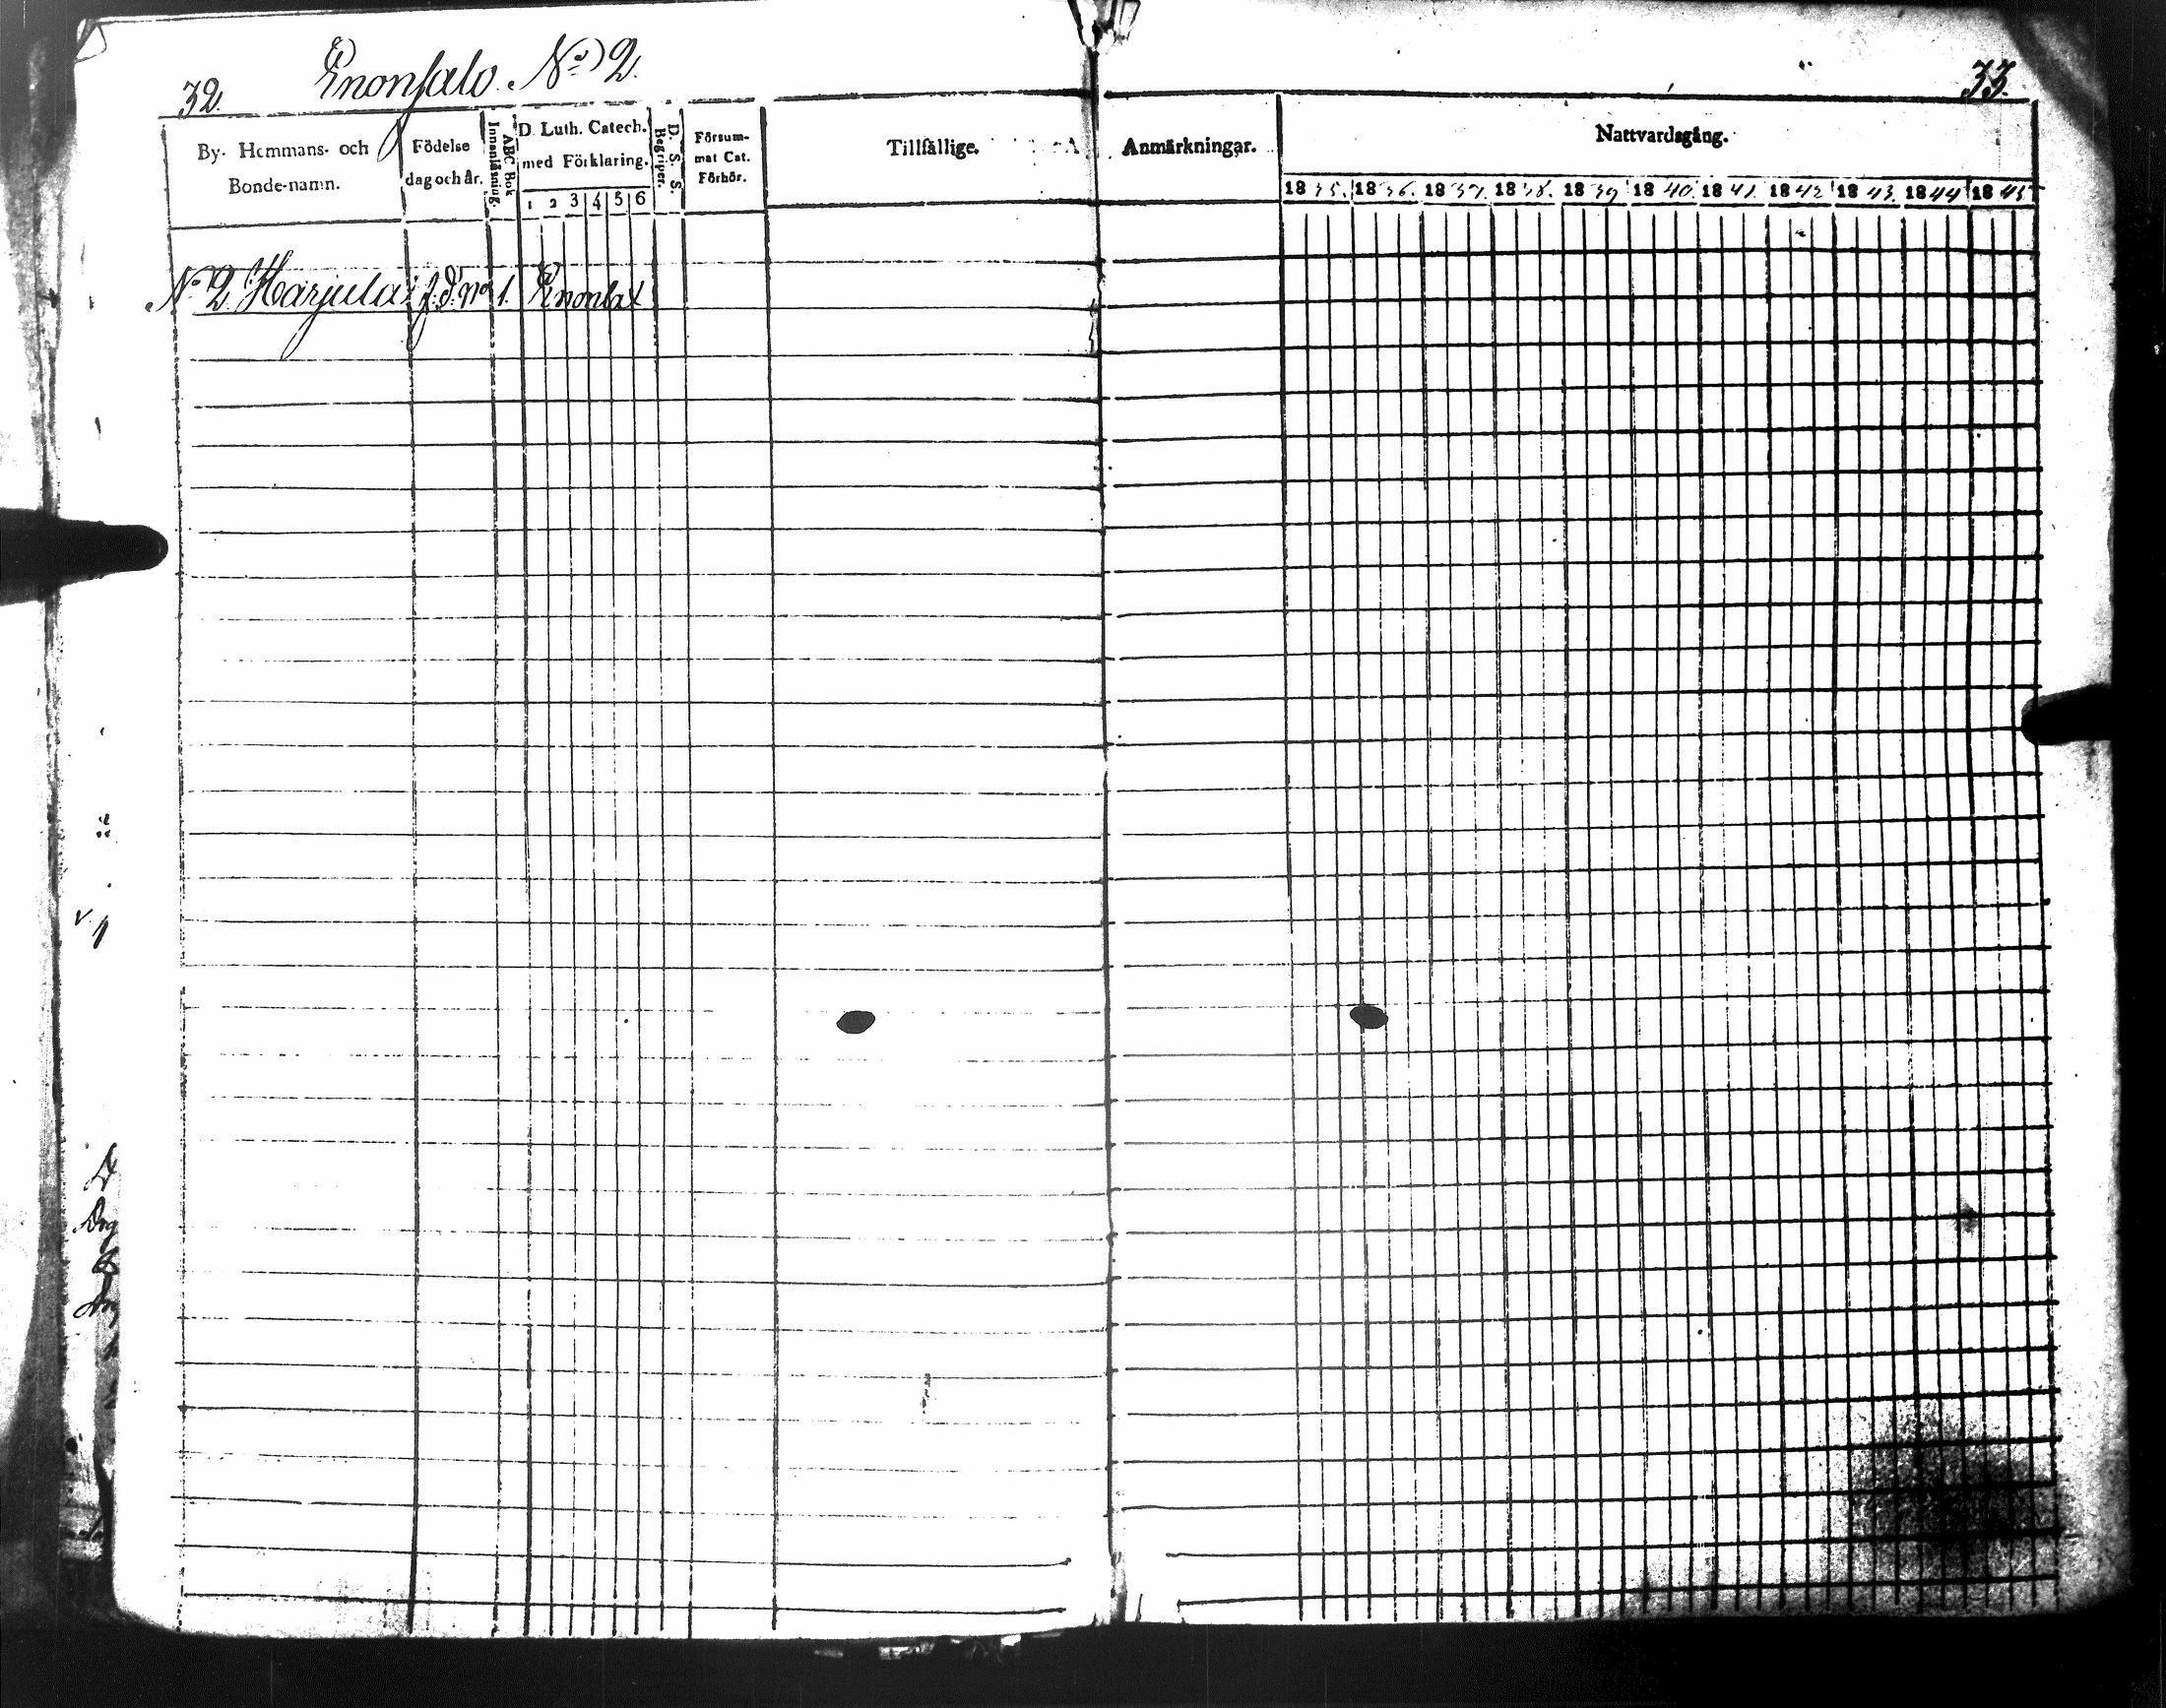 32. Enonsalo. No 2.
33.
By- Hemmans- och Bonde-namn.
Födelse dag och år.
ABC Bok Innanläsning.
D. Luth. Catech. med Förklaring.
1 2 3 4 5 6
D. S. S. Begriper.
Försum- mat Cat. Förhör.
Tillfällige.
Anmärkningar.
Nattvardsgång.
1835. 1836. 1837. 1838. 1839 1840. 1841. 1842 1843. 1844 1845
No 2 Harjula f. d. No 1. Enonlax